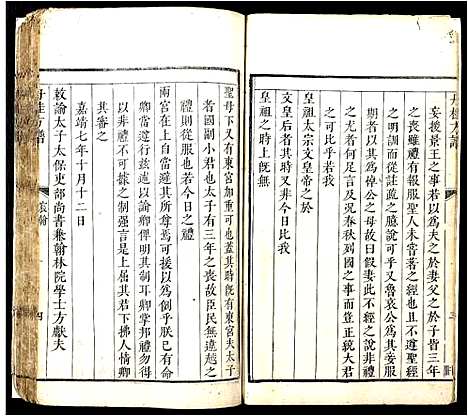 妄援景王之事若以為夫之於妻父之於子皆三年
之喪雖禮有報服聖人未嘗著之經也卿等不從經
之明訓而從註疏之臆說可乎又魯哀公為其妾服
以其為悼公之母故曰假妻此不經之說大君
之尤者君子有言及況春秋列國之事安比我
之可比乎若我
皇祖太宗文皇帝之於
文皇后者其時又非今日比我
皇祖之時上既無
聖母下又有東宮也蓋其時有東宮夫太子
者國副小君也太子有三年之喪故臣民無違越之
禮則從服也若今日之
兩宮在上自當避其所尊焉可援以為例乎朕已有命
卿當遵行茲諭卿俾明其制耳卿掌邦禮勿得
以非禮不可據之制强言是上屈其君下拂人情
其審之
嘉靖七年十月十二日
敕諭太子太保吏部尚書兼翰林院學士方獻夫
丹桂方譜
宸翰
四